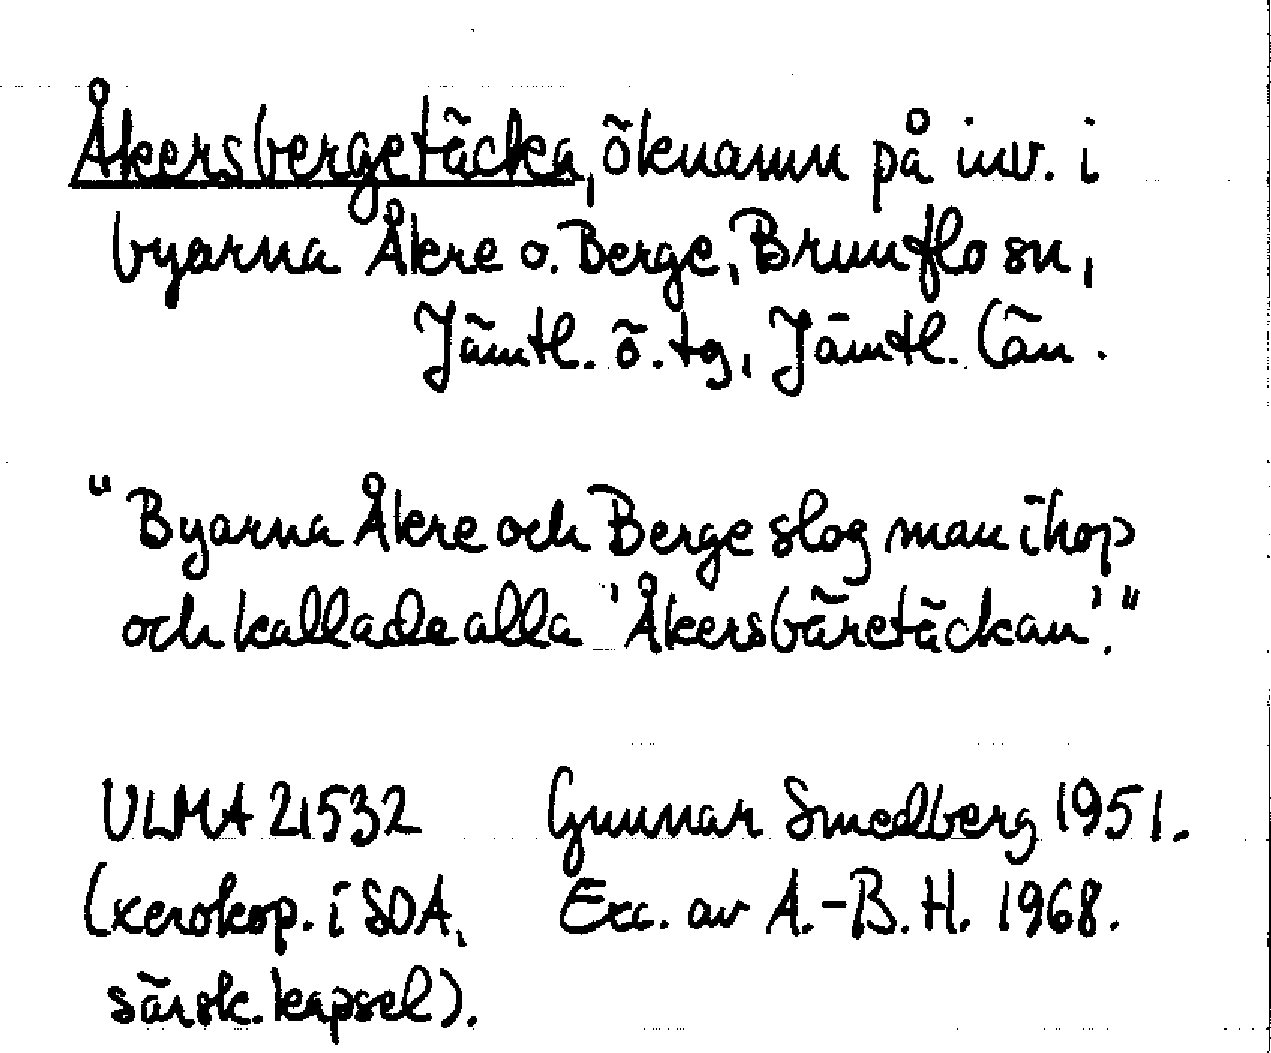 Åkersbergetäcka, öknamn på inv. i
byarna Åkre o. Berge, Brunflo sn,
Jämtl. ö. tg, Jämtl. län.
"Byarna Åkre och Berge slog man ihop
och kallade alla 'Åkersbäretäckan'."
ULMA 21532 Gunnar Smedberg 1951.
(xerokop. i SOA, Exc. av A.-B. H. 1968.
särsk. kapsel).